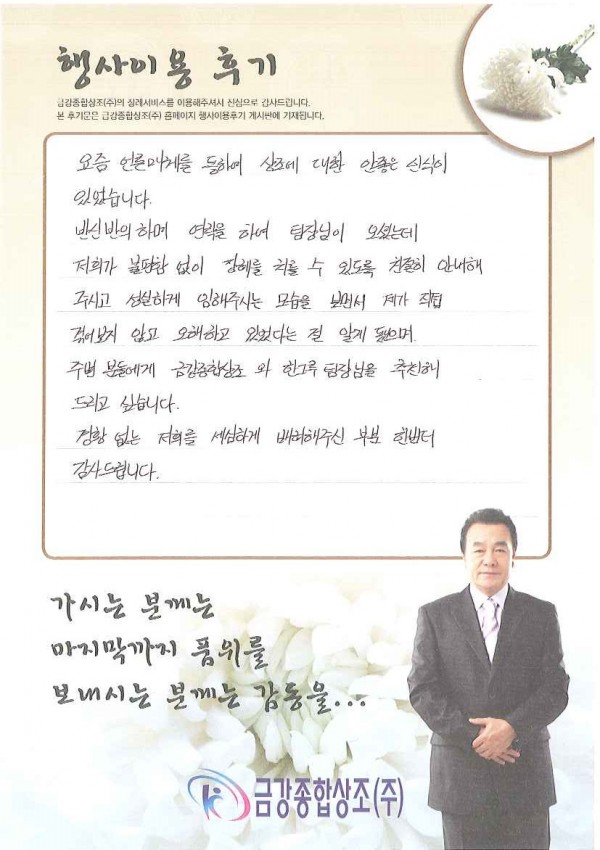 행사이용 후기
금강종합상조(주)의 장례서비스를 이용해주셔서 진심으로 감사드립니다.
본 후기문은 금강종합상조(주) 홈페이지 행사이용후기 게시판에 기재됩니다.
요즘 언론매체를 통하여 상조에 대한 안좋은 인식이
있었습니다.
반신반의 하며 연락을 하여 팀장님이 오셨는데
저희가 불편함 없이 장례를 치를 수 있도록 친절히 안내해
주시고 성실하게 임해주시는 모습을 보면서 제가 직접
겪어보지 않고 오해하고 있었다는 걸 알게 됐으며.
주변 분들에게 금강종합상조 와 한그루 팀장님을 추천해
드리고 싶습니다.
경황 없는 저희를 세심하게 배려해주신 부분 한번더
감사드립니다.
가시는 분께는
마지막까지 품위를
보내시는 분께는 감동을...
금강종합상조(주)